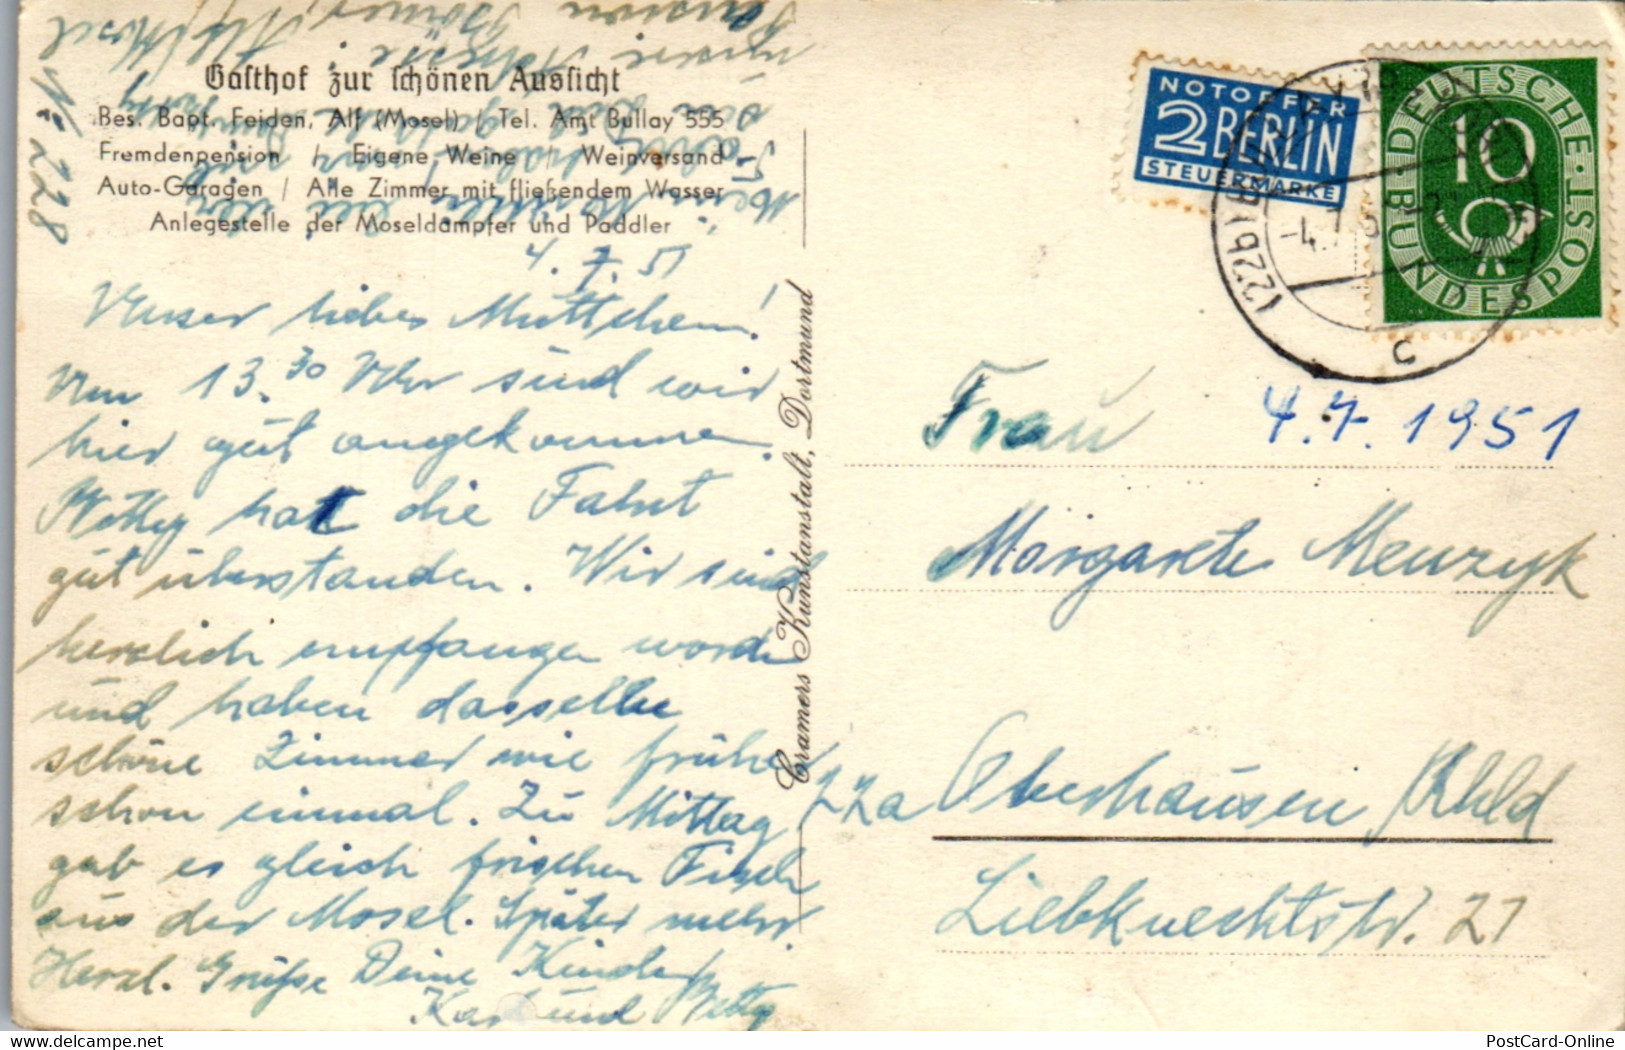 Gasthof zur schönen Aussicht
Bes. Bapt. Feiden, Alf (Mosel) / Tel. Amt Bullay 555
Fremdenpension / Eigene Weine / Weinversand
Auto-Garagen / Alle Zimmer mit fließendem Wasser
Anlegestelle der Moseldampfer und Paddler
№ 228
4.7.51
Unser liebes Muttchen!
Um 13.30 Uhr sind wir
hier gut angekommen.
Betty hat die Fahrt
gut überstanden. Wir sind
herzlich empfangen worden
und haben dasselbe
schöne Zimmer wie früher
schon einmal. Zu Mittag
gab es gleich frischen Fisch
aus der Mosel. Später mehr.
Herzl. Grüße Deine Kinder
Karl und Betty
Pension
Alf/Mosel
Cramers Kunstanstalt, Dortmund
NOTOPFER
2 BERLIN
STEUERMARKE
DEUTSCHE BUNDESPOST
10
(22b)
c
4.7.1951
Frau
Margarete Menzyk
22a Oberhausen/Rhld
Liebknechtstr. 27
PostCard-Online